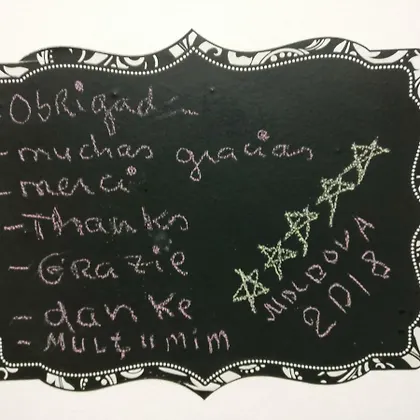 - Obrigada
- muchas gracias
- merci
- Thanks
- GRAZIE
- danke
- MULȚUMIM
MOLDOVA
2018